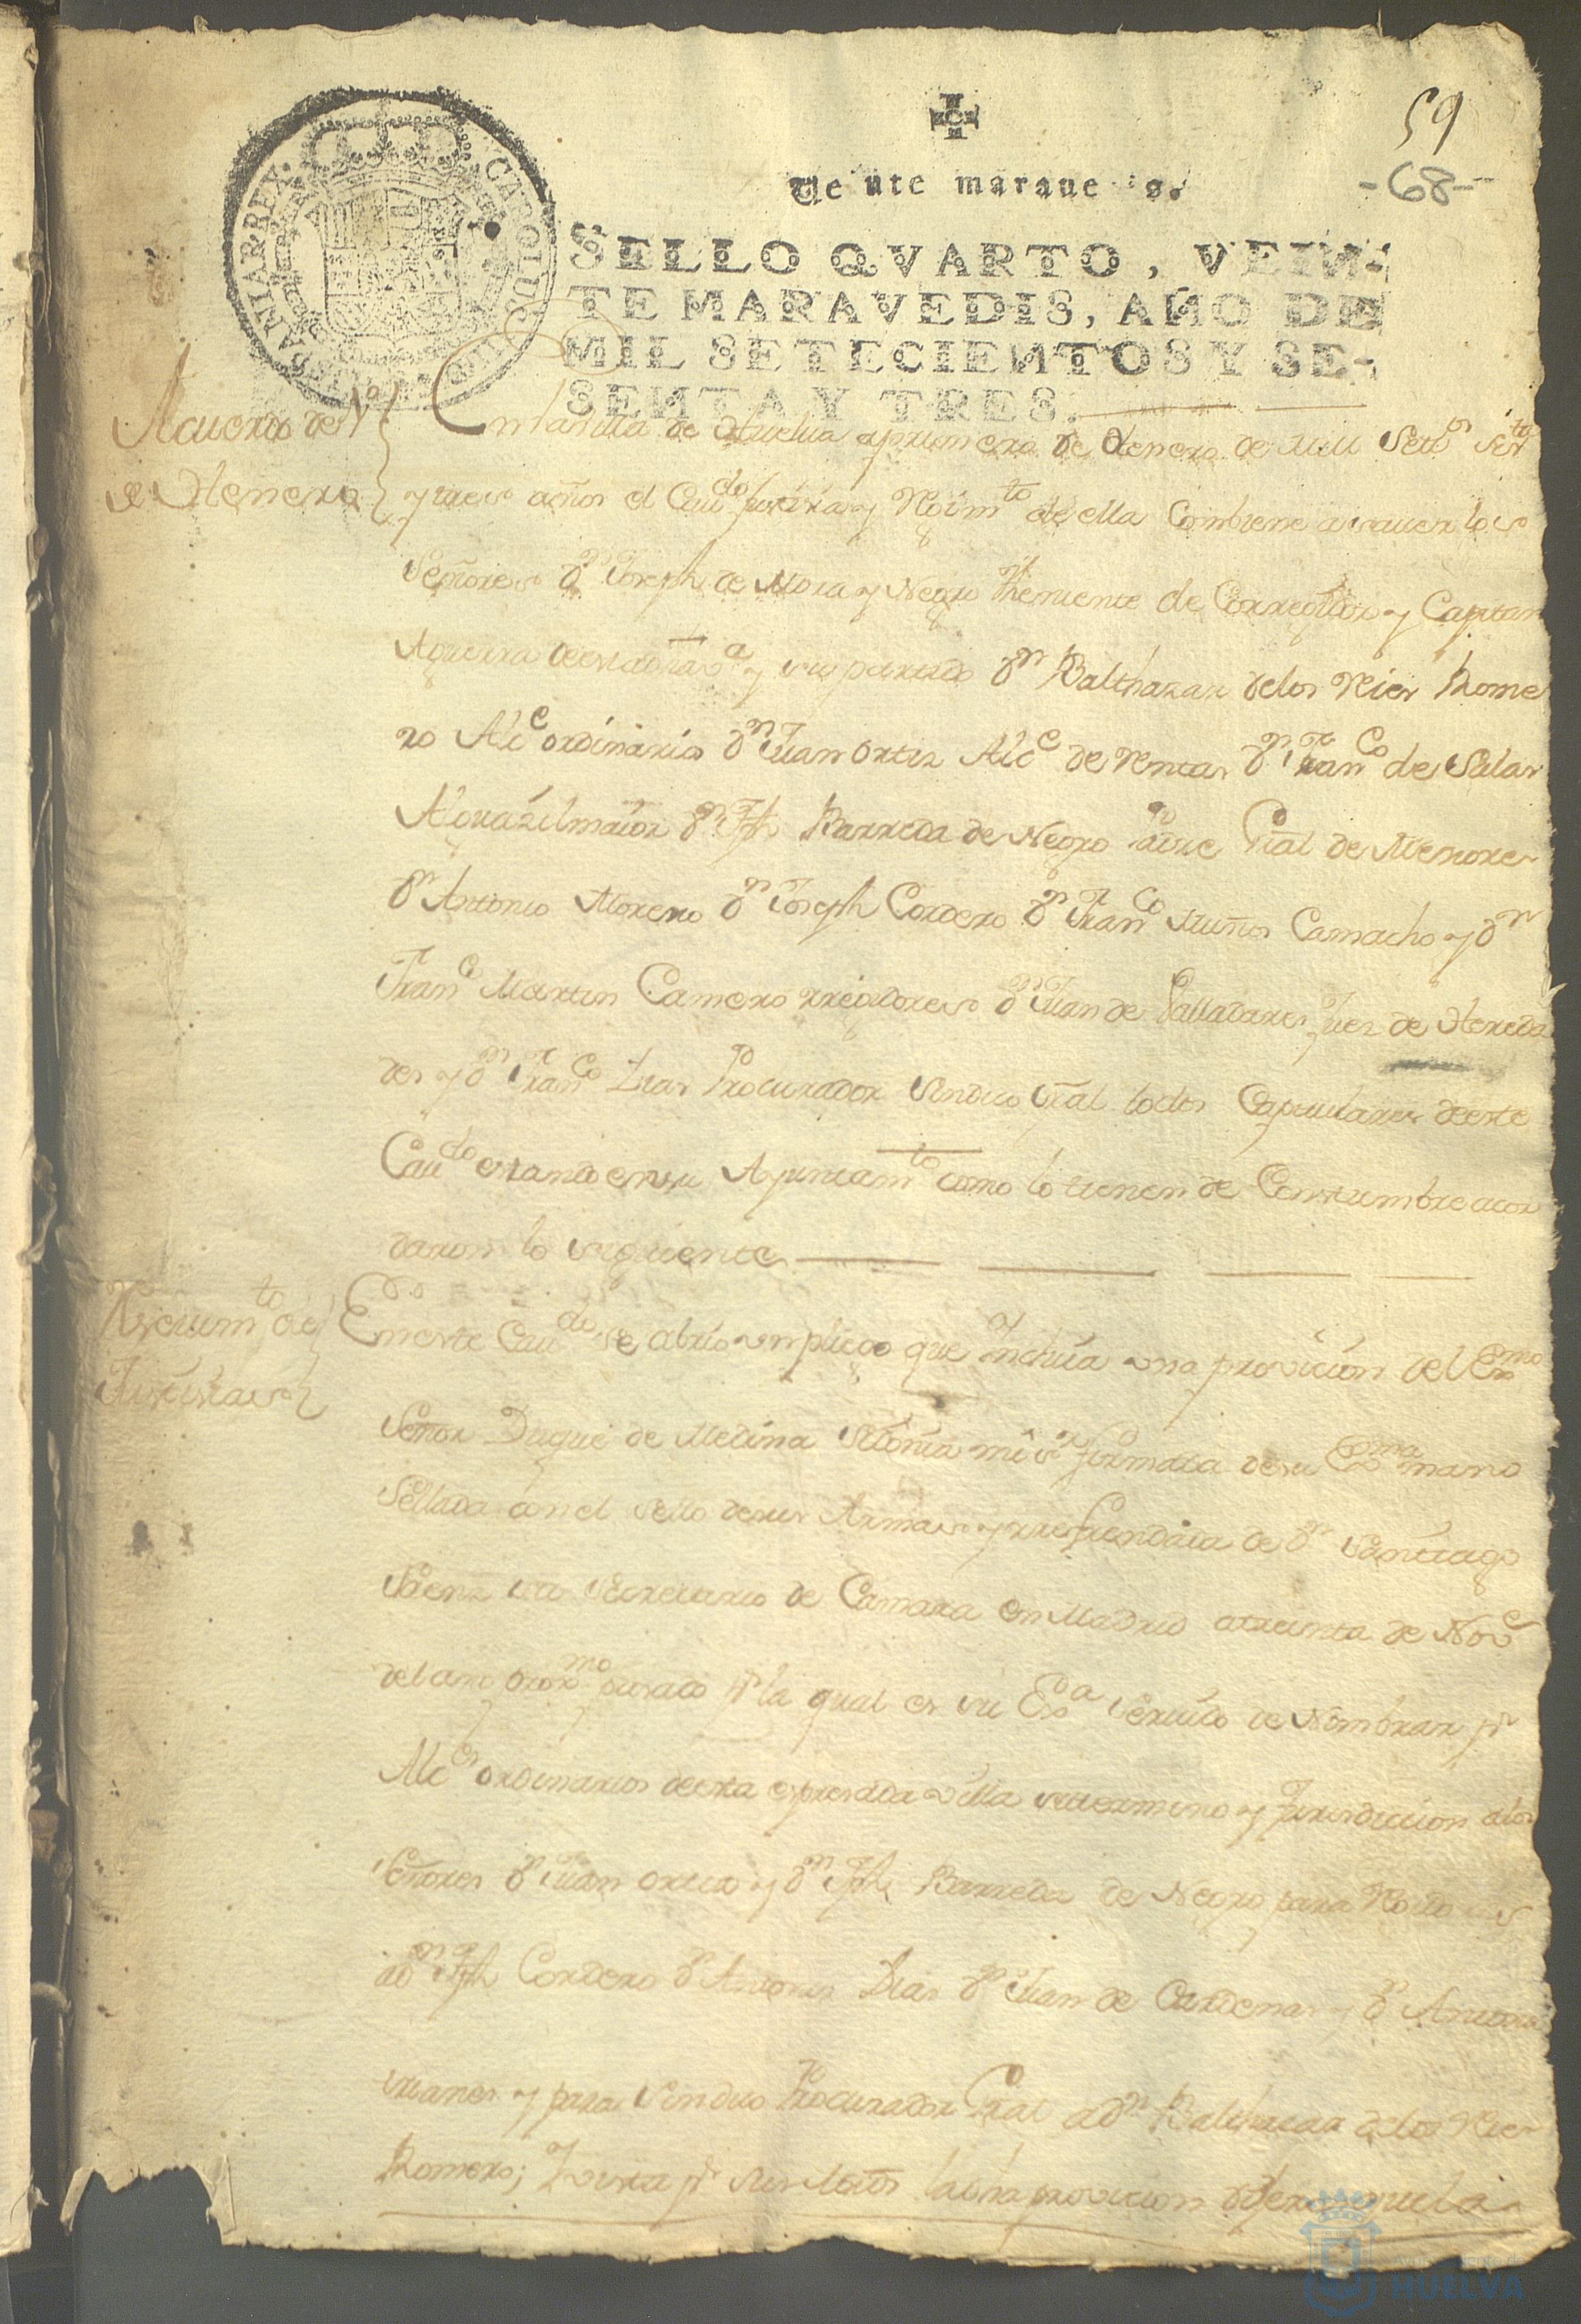 59
-68-
Veinte maravedis.
SELLO QVARTO, VEIN-
TE MARAVEDIS, AÑO DE
MIL SETECIENTOS Y SE-
SENTA Y TRES.
CAROLUS III HISPANIAR. REX
Acuerdo de 1º
de Henero
En la villa de Huelva a primero de Henero de Mill Setos Seta
y tres años el Cavdo Justizia y Rexmto de ella Combiene a saver los
Señores Dn Joseph de Mora y Negro Theniente de Corregidor y Capitan
Aguerra de esta dha va y su partido Dn Balthazar delos Ries Rome
ro Alce ordinario Dn Juan Ortiz Alce de rentas Dn Franco de Salas
Alguazil maior Dn Jph Barreda de Negro Padre Gral de Menores
Dn Antonio Moreno Dn Joseph Cordero Dn Franco Nuños Camacho y Dn
Franco Martin Camero rregidores Dn Juan de Valladares Juez de Hereda
des y Dn Franco Dias Procurador Sindico Gral todos Capitulares de este
Cavdo estando en su Ayuntamto como lo tienen de Constumbre acor
daron lo siguiente
Resevimto de
Justisias
En este Cavdo se abrio un pliego que Incluia una provicion del Exmo
Señor Duque de Medina Sidonia mi sr firmada de su Exma mano
Sellada con el sello de sus Armas y rrefrendada de Dn Santiago
Saenz su Secretario de Camara en Madrid a treinta de Nove
del año proxmo pasado pr la qual es su Exa servido de Nombrar pr
Alces ordinarios de esta espresada villa su termino y Jurisdiccion a los
señores Dn Juan Ortiz y Dn Jph Barreda de Negro para
a Dn Jph Cordero Dn Antonio Dias Dn Juan de Cardenas y Dn Antonio
y para Sindico Procurador Gral a Dn Balthazar delos Ries
Romero; Y vista pr sus la dha provicion
AYUNTAMIENTO DE
HUELVA